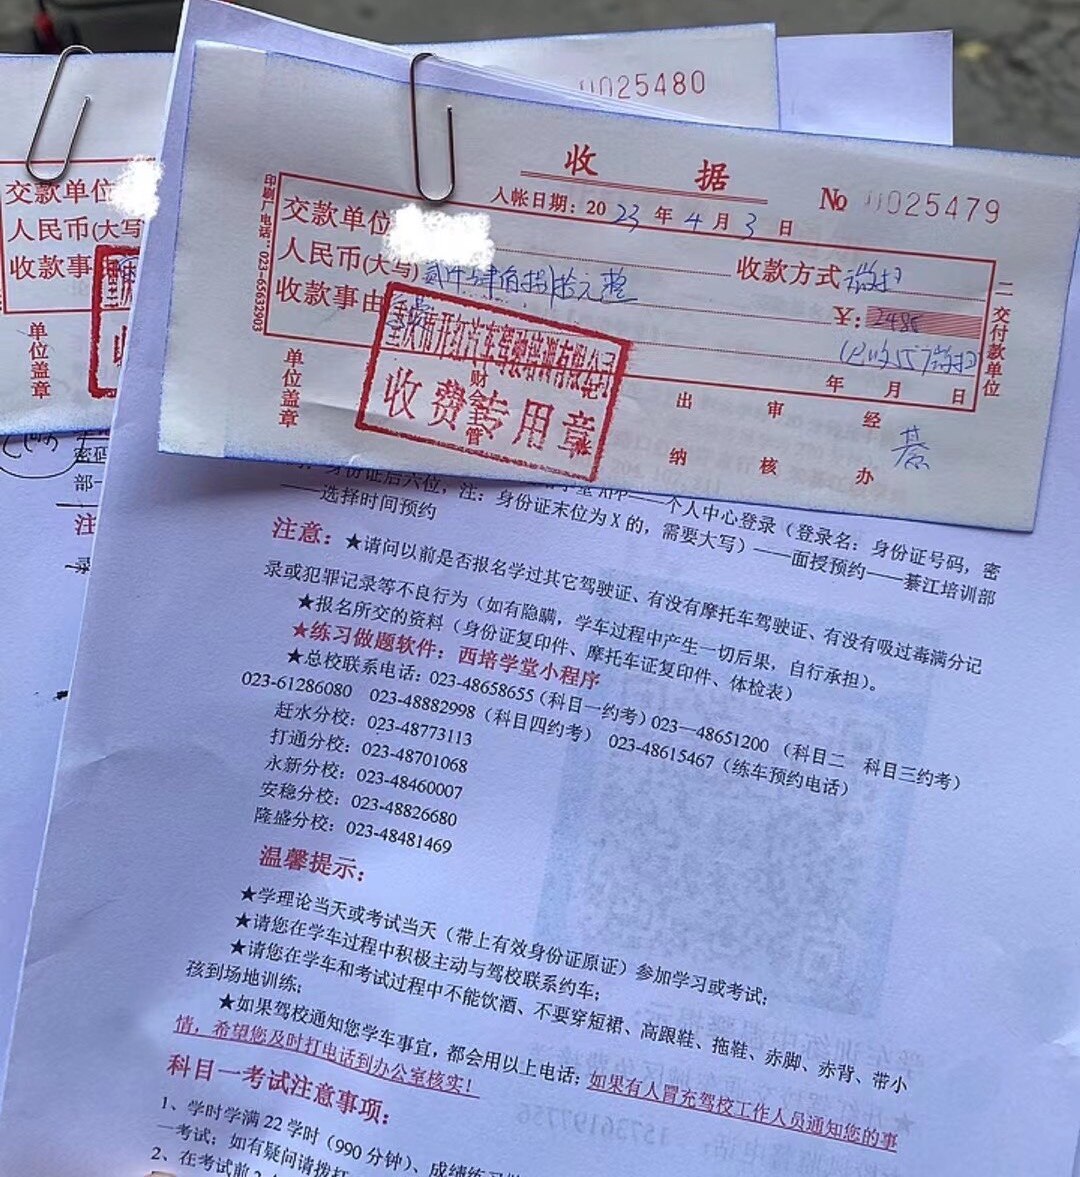 0025480
交款单位
人民币(大写)
收款事
单位盖章
收据
No 0025479
入帐日期：2023年4月3日
印刷厂电话：023-65632903
交款单位
收款方式 微扫
人民币(大写) 贰仟肆佰捌拾元整
￥：2480
收款事由
年 月 日
重庆市开红汽车驾驶培训有限公司
收费专用章
单位盖章
财会主管
出纳
审核
经办
二交付款单位
密码
部一
注
录
身份证后六位，注：身份证末位为X的，需要大写）——面授预约——綦江培训部
APP——个人中心登录（登录名：身份证号码，密
——选择时间预约
注意：★请问以前是否报名学过其它驾驶证、有没有摩托车驾驶证、有没有吸过毒满分记
录或犯罪记录等不良行为（如有隐瞒，学车过程中产生一切后果，自行承担）。
★报名所交的资料（身份证复印件、摩托车证复印件、体检表）
★练习做题软件：西培学堂小程序
★总校联系电话：023-48658655（科目一约考）023—48651200（科目二 科目三约考）
023-61286080 023-48882998（科目四约考） 023-48615467（练车预约电话）
赶水分校：023-48773113
打通分校：023-48701068
永新分校：023-48460007
安稳分校：023-48826680
隆盛分校：023-48481469
温馨提示：
★学理论当天或考试当天（带上有效身份证原证）参加学习或考试；
★请您在学车过程中积极主动与驾校联系约车；
★请您在学车和考试过程中不能饮酒、不要穿短裙、高跟鞋、拖鞋、赤脚、赤背、带小
孩到场地训练；
★如果驾校通知您学车事宜，都会用以上电话；如果有人冒充驾校工作人员通知您的事
情，希望您及时打电话到办公室核实！
科目一考试注意事项：
1、学时学满22学时（990分钟）、成绩练习
一考试；如有疑问请拨打
2、在考试前2